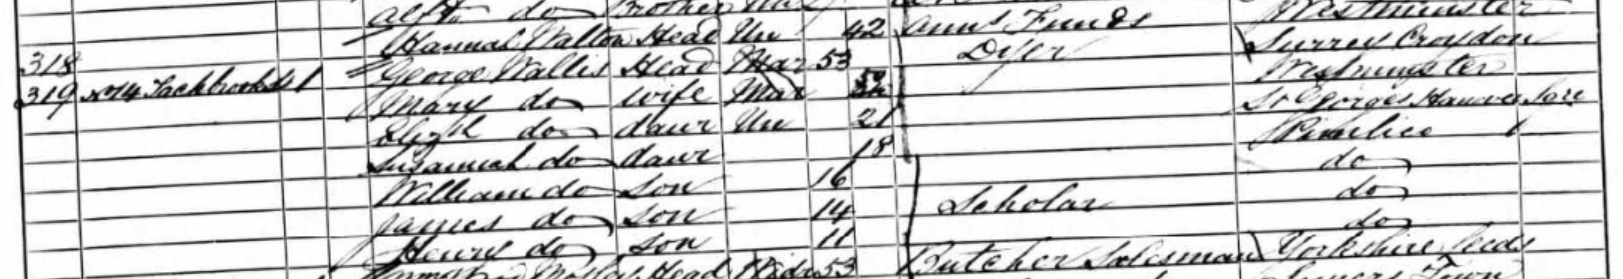 Alfd do Brother Un
318 Hannah Walton Head Un 42 Annt Funds Westminster
319 No 14 Tachbrook St 1 George Wallis Head Mar 53 Dyer Surrey Croydon
Mary do wife Mar 50 Westminster
Elizh do daur Un 21 St Georges Hanover Sqre
Susannah do daur 18 Pimlico
William do son 16 do
James do son 14 Scholar do
Henry do son 11 do
Head Widr 53 Butcher Salesman Yorkshire Leeds